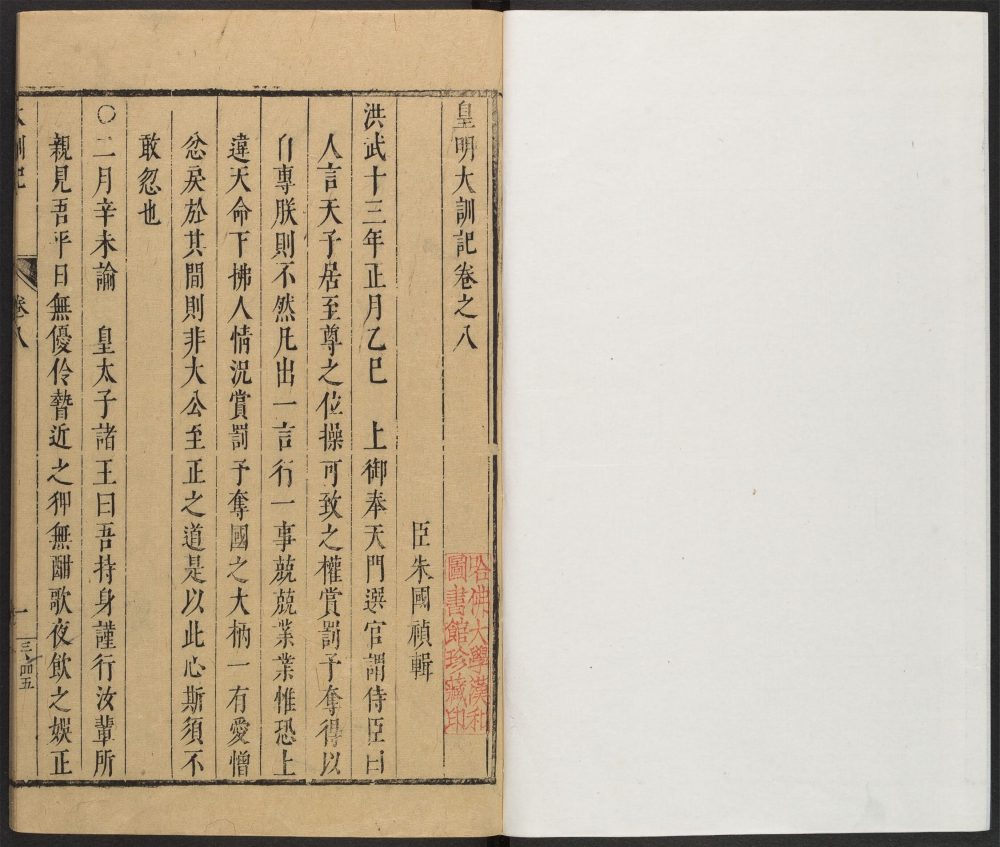 皇明大訓記卷之八
臣朱國禎輯
哈佛大學漢和
圖書館珍藏印
洪武十三年正月乙巳　上御奉天門選官謂侍臣曰
人言天子居至尊之位操可致之權賞罰予奪得以
自專朕則不然凡出一言行一事兢兢業業惟恐上
違天命下拂人情況賞罰予奪國之大柄一有愛憎
忿戾於其間則非大公至正之道是以此心斯須不
敢忽也
○二月辛未諭　皇太子諸王曰吾持身謹行汝輩所
親見吾平日無優伶瞽近之狎無酣歌夜飲之娛正
大訓記
卷八
一